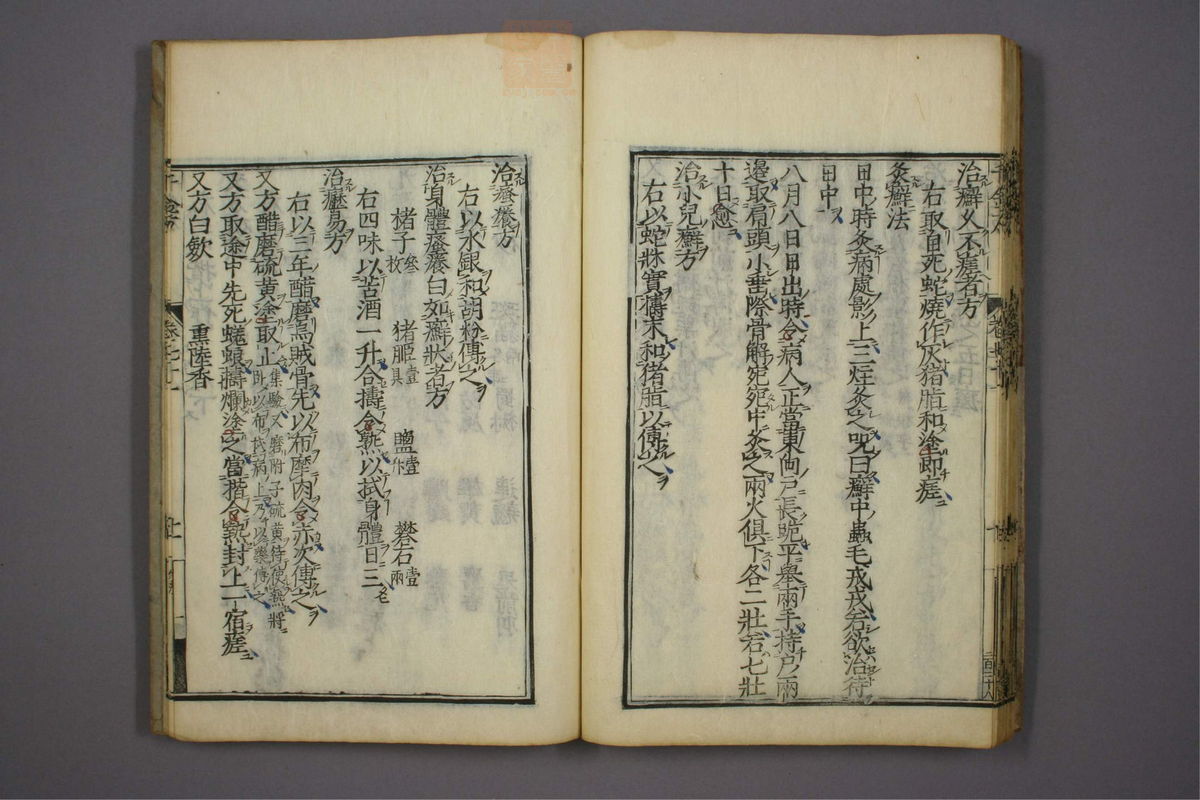 治癬久不瘥者方
右取自死蛇燒作灰猪脂和塗即瘥
灸癬法
日中時灸病處影上三炷灸之呪曰癬中蟲毛戎戎若欲治待
日中
八月八日日出時令病人正當東向戸長跪平舉兩手持户兩
邊取肩頭小垂際骨解宛宛中灸之兩火俱下各二壯若七壯
十日愈
治小兒癬方
右以蛇牀實擣末和猪脂以傅之
治瘙癢方
右以水銀和胡粉傅之
治身體瘙癢白如癬狀者方
楮子叁枚 猪胵壹具 鹽壹升 礬石壹兩
右四味以苦酒一升合擣令熟以拭身體日三
治癧易方
右以三年醋磨烏賊骨先以布摩肉令赤次傅之
又方醋磨硫黄塗取止集驗又磨附子硫黄待使熟將
卧以布拭病上乃以藥傅之
又方取途中先死蜣蜋擣爛塗之當揩令熱封上一宿瘥
又方白歛 熏陸香